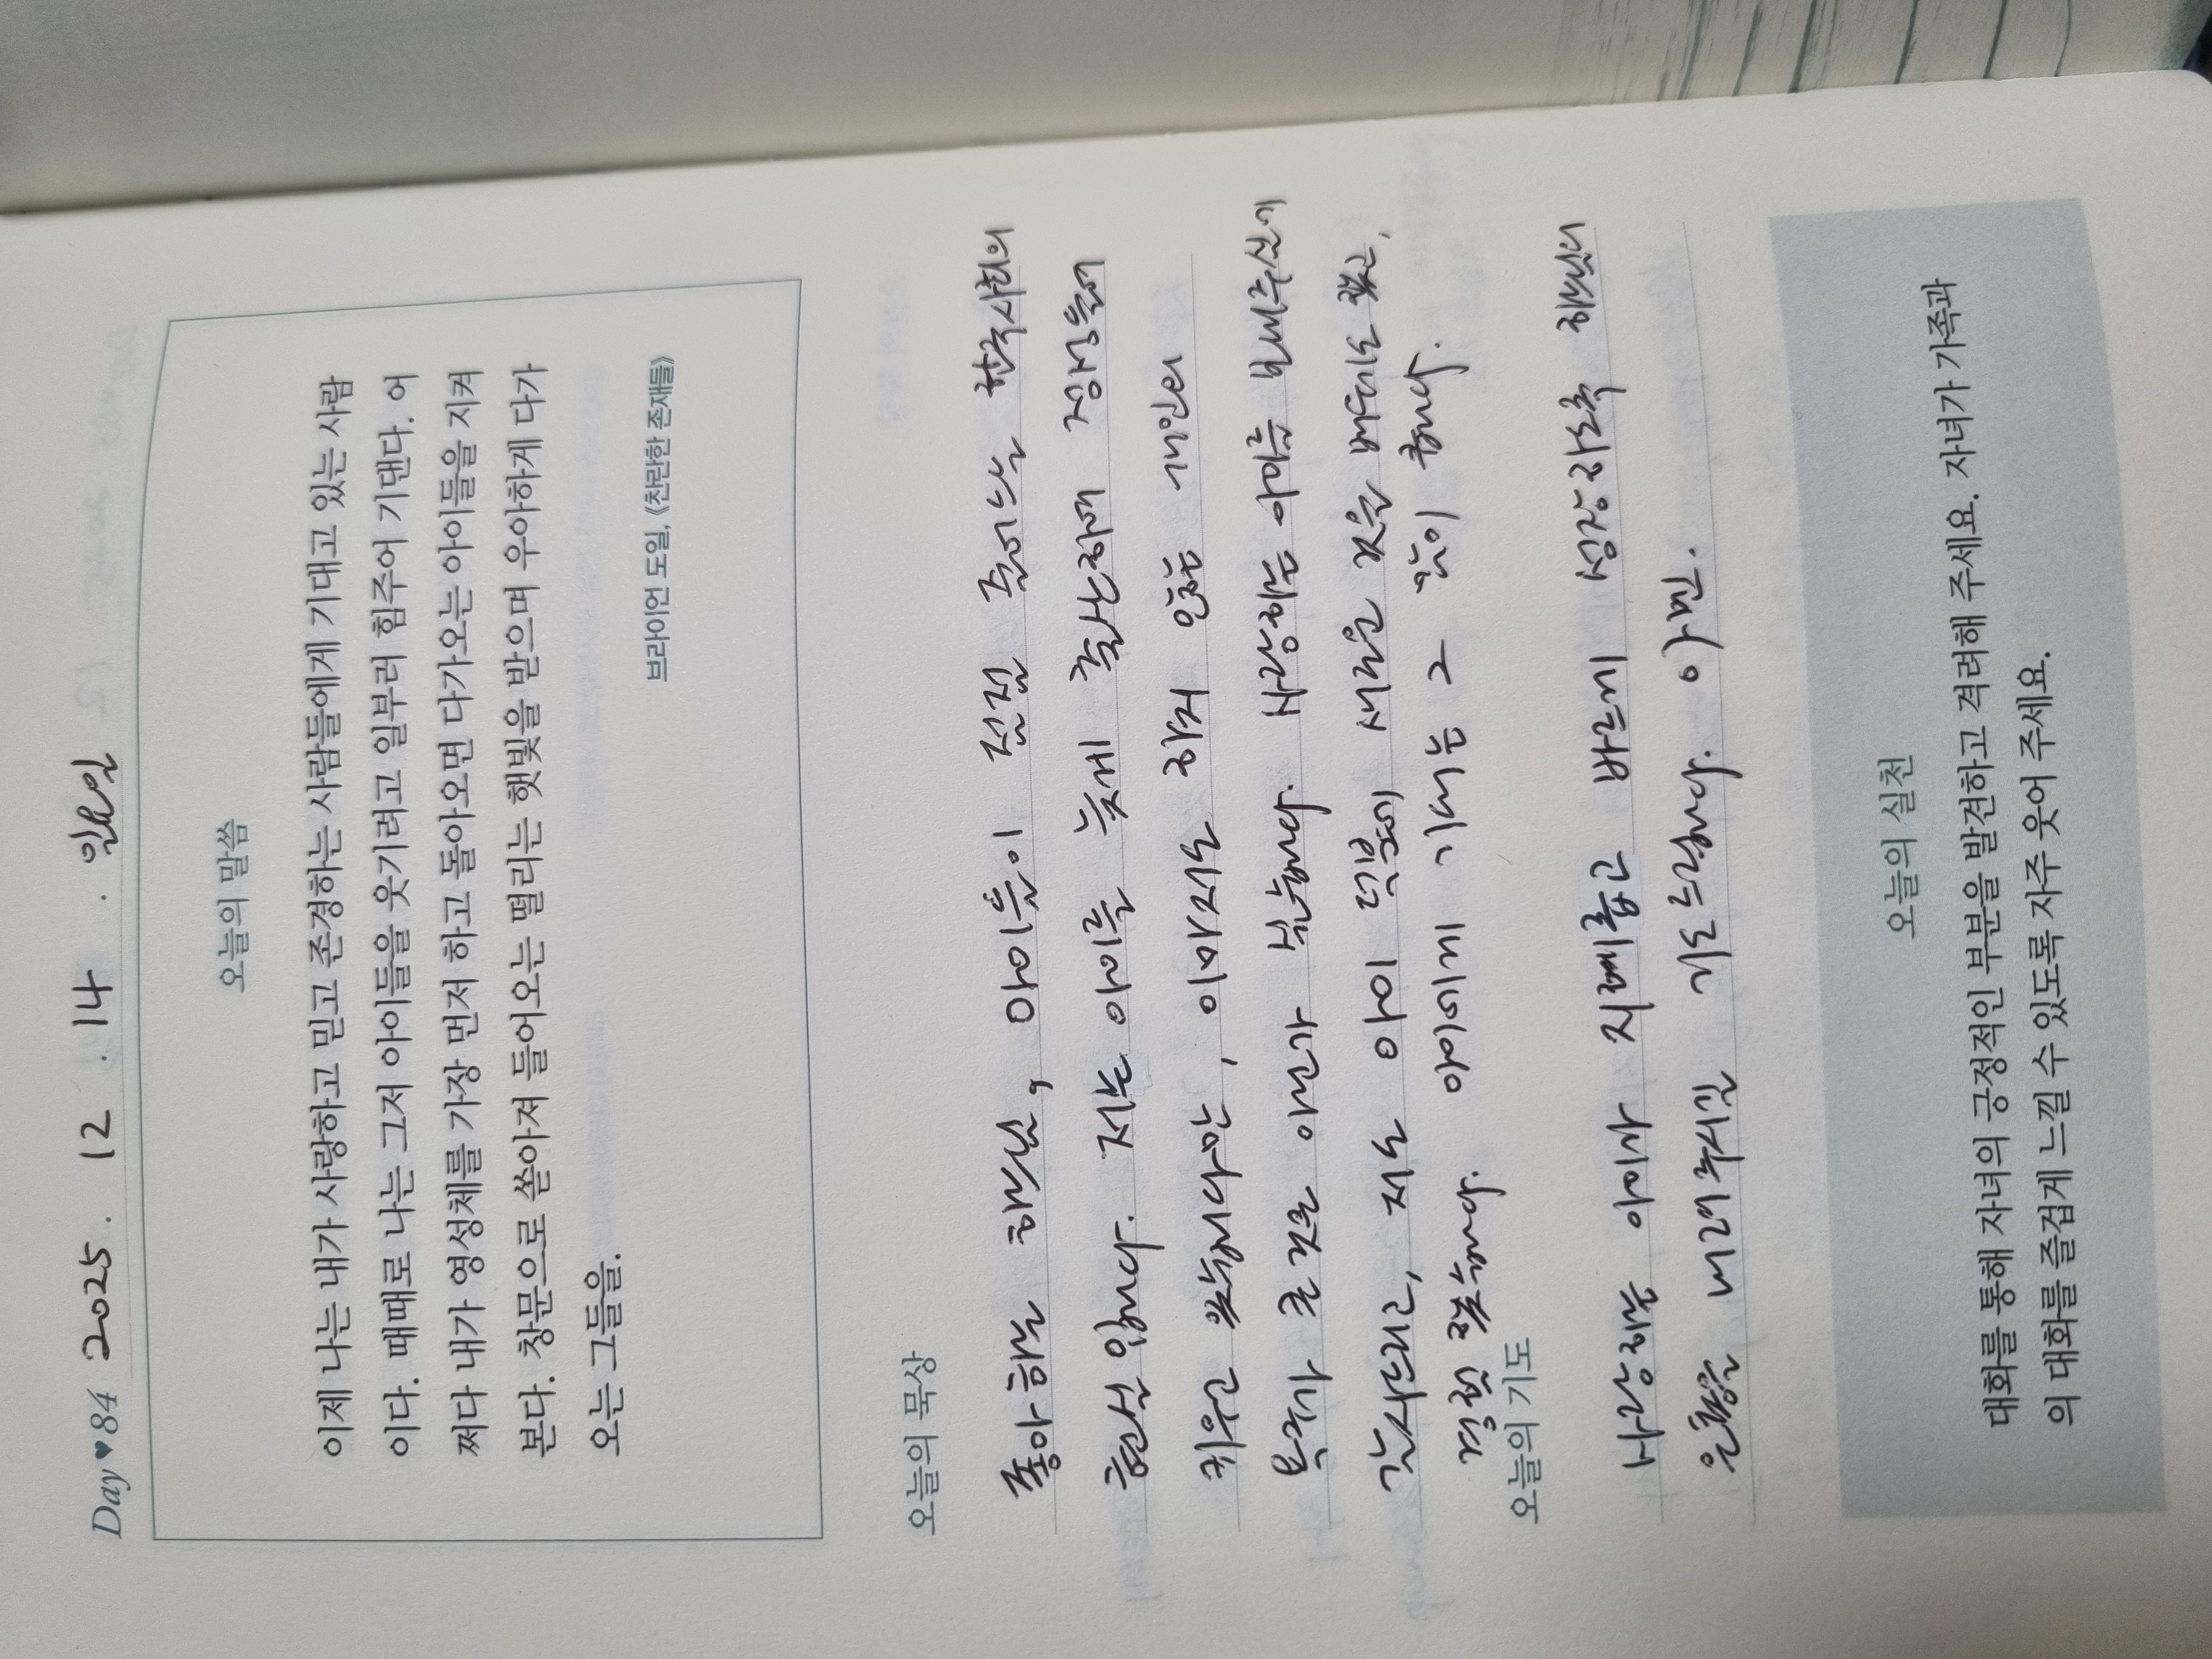 Day ♥ 84 2025. 12. 14. 일요일
오늘의 말씀
이제 나는 내가 사랑하고 믿고 존경하는 사람들에게 기대고 있는 사람
이다. 때때로 나는 그저 아이들을 웃기려고 일부러 힘주어 기댄다. 어
쩌다 내가 영성체를 가장 먼저 하고 돌아오면 다가오는 아이들을 지켜
본다. 창문으로 쏟아져 들어오는 떨리는 햇빛을 받으며 우아하게 다가
오는 그들을.
브라이언 도일, 《찬란한 존재들》
오늘의 묵상
좋아하는 하느님, 아이들이 점점 줄어드는 한국사회의
현실입니다. 저는 아이를 늦게 출산하여 정성들여
키우고 있습니다만, 이마저도 하지 않는 개인의
욕구가 큰 것은 아닌가 싶습니다. 사랑하는 아이를 보내주심에
감사드리고, 저도 아이 덕분에 새로운 것을 배우기도 하고,
경험 했습니다. 아이에게 기대는 그 힘이 큽니다.
오늘의 기도
사랑하는 아이가 지혜롭고 바르게 성장하도록 하느님
은총을 내려주시길 기도드립니다. 아멘.
오늘의 실천
대화를 통해 자녀의 긍정적인 부분을 발견하고 격려해 주세요. 자녀가 가족과
의 대화를 즐겁게 느낄 수 있도록 자주 웃어 주세요.